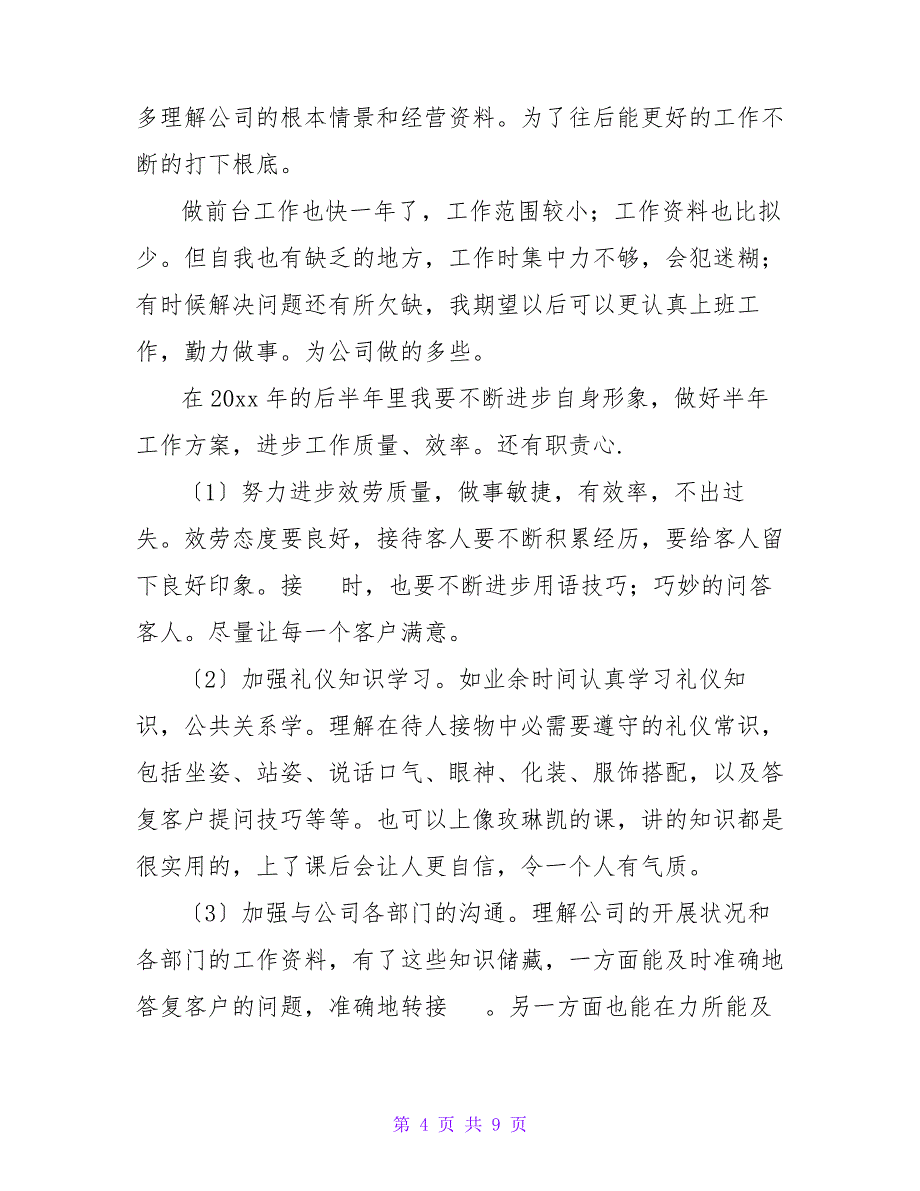 多理解公司的根本情景和经营资料。为了往后能更好的工作不
断的打下根底。
做前台工作也快一年了，工作范围较小；工作资料也比拟
少。但自我也有缺乏的地方，工作时集中力不够，会犯迷糊；
有时候解决问题还有所欠缺，我期望以后可以更认真上班工
作，勤力做事。为公司做的多些。
在 20xx 年的后半年里我要不断进步自身形象，做好半年
工作方案，进步工作质量、效率。还有职责心.
〔1〕努力进步效劳质量，做事敏捷，有效率，不出过
失。效劳态度要良好，接待客人要不断积累经历，要给客人留
下良好印象。接 时，也要不断进步用语技巧；巧妙的问答
客人。尽量让每一个客户满意。
〔2〕加强礼仪知识学习。如业余时间认真学习礼仪知
识，公共关系学。理解在待人接物中必需要遵守的礼仪常识，
包括坐姿、站姿、说话口气、眼神、化装、服饰搭配，以及答
复客户提问技巧等等。也可以上像玫琳凯的课，讲的知识都是
很实用的，上了课后会让人更自信，令一个人有气质。
〔3〕加强与公司各部门的沟通。理解公司的开展状况和
各部门的工作资料，有了这些知识储藏，一方面能及时准确地
答复客户的问题，准确地转接 。另一方面也能在力所能及
第 4 页 共 9 页